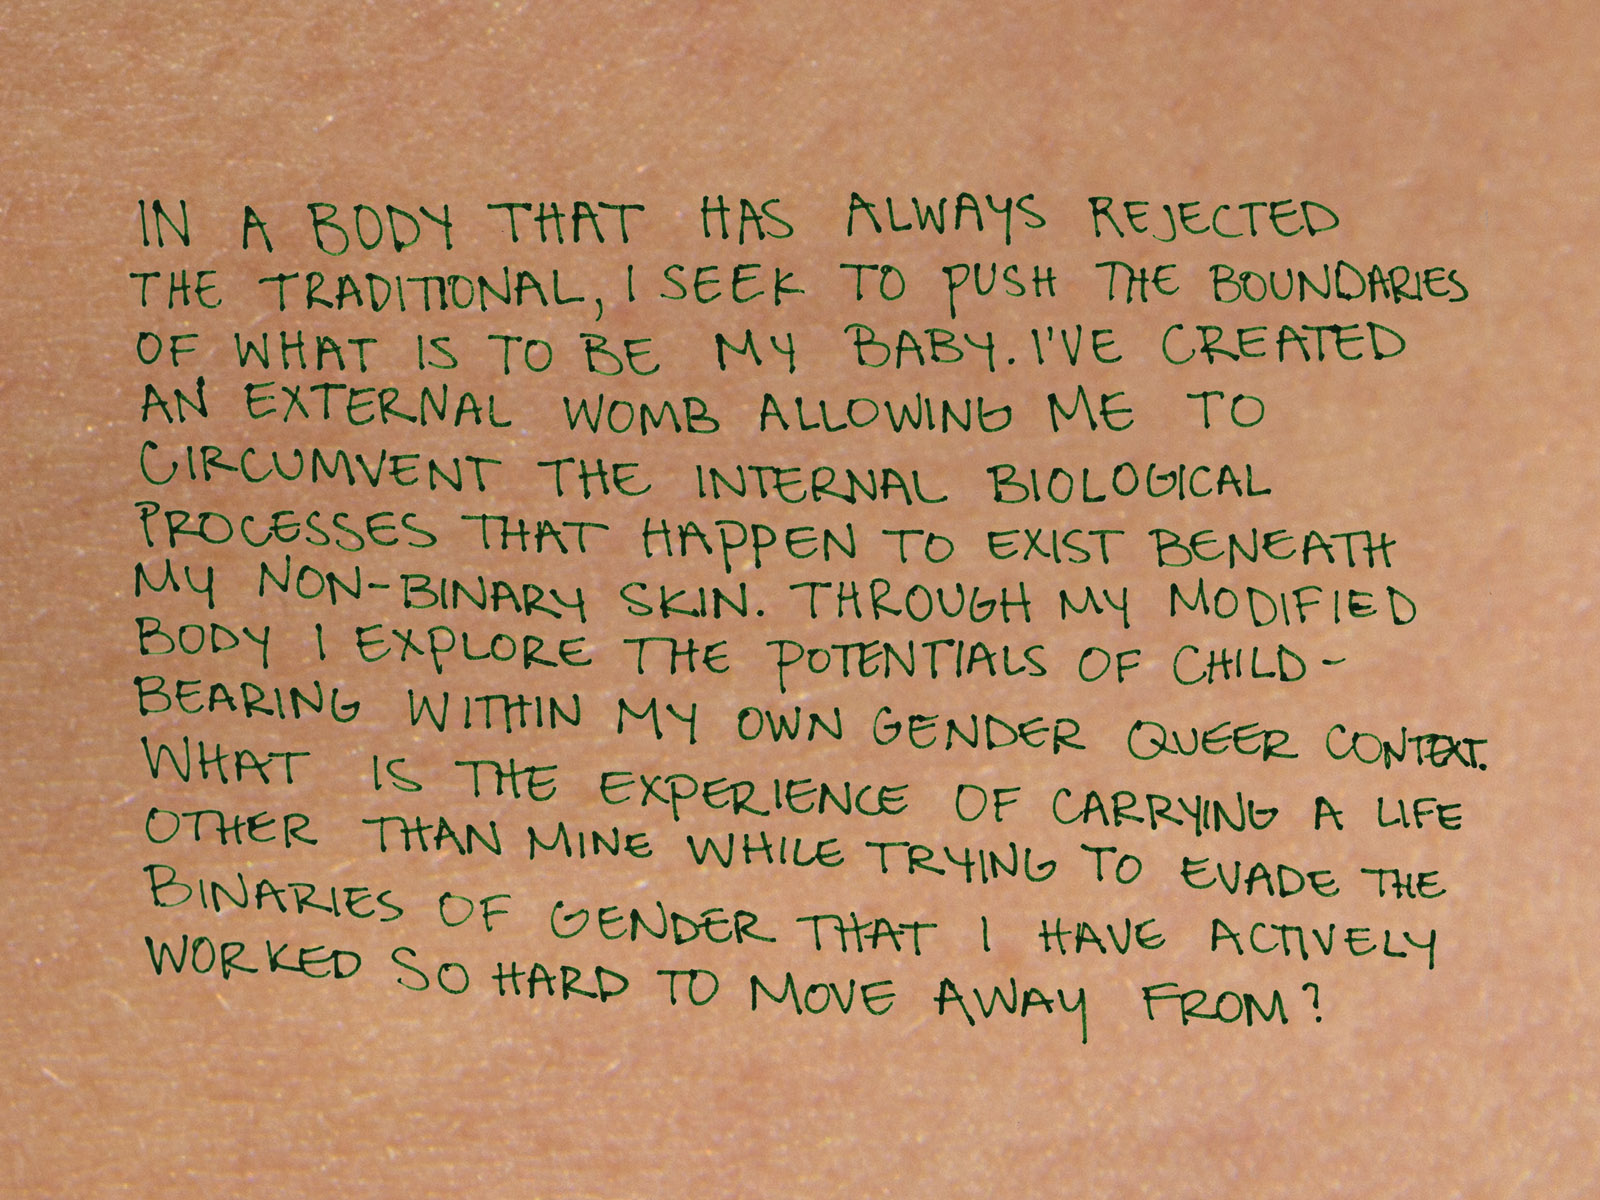 IN A BODY THAT HAS ALWAYS REJECTED
THE TRADITIONAL, I SEEK TO PUSH THE BOUNDARIES
OF WHAT IS TO BE MY BABY. I'VE CREATED
AN EXTERNAL WOMB ALLOWING ME TO
CIRCUMVENT THE INTERNAL BIOLOGICAL
PROCESSES THAT HAPPEN TO EXIST BENEATH
MY NON-BINARY SKIN. THROUGH MY MODIFIED
BODY I EXPLORE THE POTENTIALS OF CHILD-
BEARING WITHIN MY OWN GENDER QUEER CONTEXT.
WHAT IS THE EXPERIENCE OF CARRYING A LIFE
OTHER THAN MINE WHILE TRYING TO EVADE THE
BINARIES OF GENDER THAT I HAVE ACTIVELY
WORKED SO HARD TO MOVE AWAY FROM?